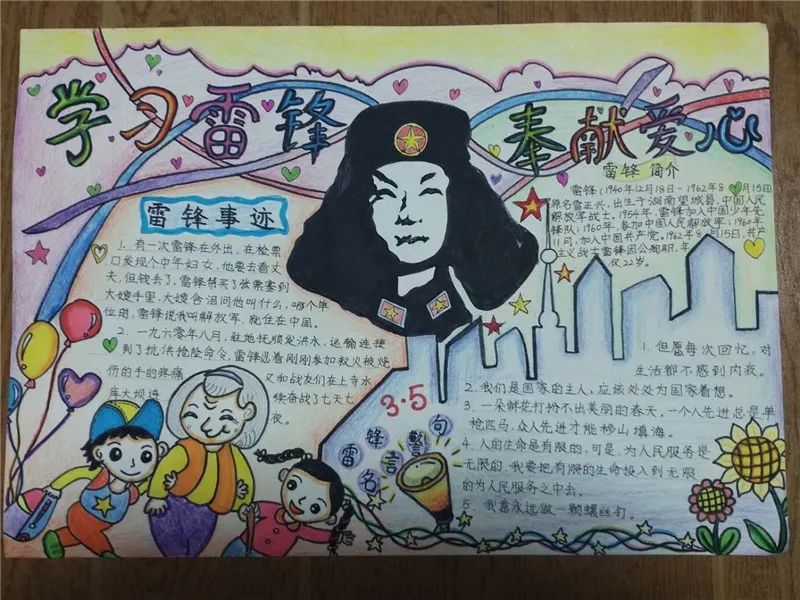 学习雷锋
奉献爱心
雷锋事迹
1. 有一次雷锋在外出，在检票
口发现个中年妇女，他要去看丈
夫，但钱丢了，雷锋帮买了张票塞到
大嫂手里，大嫂含泪问他叫什么，哪个单
位的，雷锋说我叫解放军，就住在中国。
2. 一九六零年八月，驻地抚顺发洪水，运输连接
到了抗洪抢险命令，雷锋忍着刚刚参加救火被烧
伤的手的疼痛
又和战友们在上寺水
库大坝连
续奋战了七天七
夜。
雷锋 简介
雷锋（1940年12月18日-1962年8月15日
原名雷正兴，出生于湖南望城县，中国人民
解放军战士。1954年，雷锋加入中国少年先
锋队；1960年，参加中国人民解放军；1960年
11月，加入中国共产党。1962年8月15日，共产
主义战士雷锋因公殉职，年
仅22岁。
3·5
雷锋名言警句
1. 但愿每次回忆，对
生活都不感到内疚。
2. 我们是国家的主人，应该处处为国家着想。
3. 一朵鲜花打扮不出美丽的春天，一个人先进总是单
枪匹马，众人先进才能移山填海。
4. 人的生命是有限的，可是，为人民服务是
无限的，我要把有限的生命投入到无限
的为人民服务之中去。
5. 我愿永远做一颗螺丝钉。